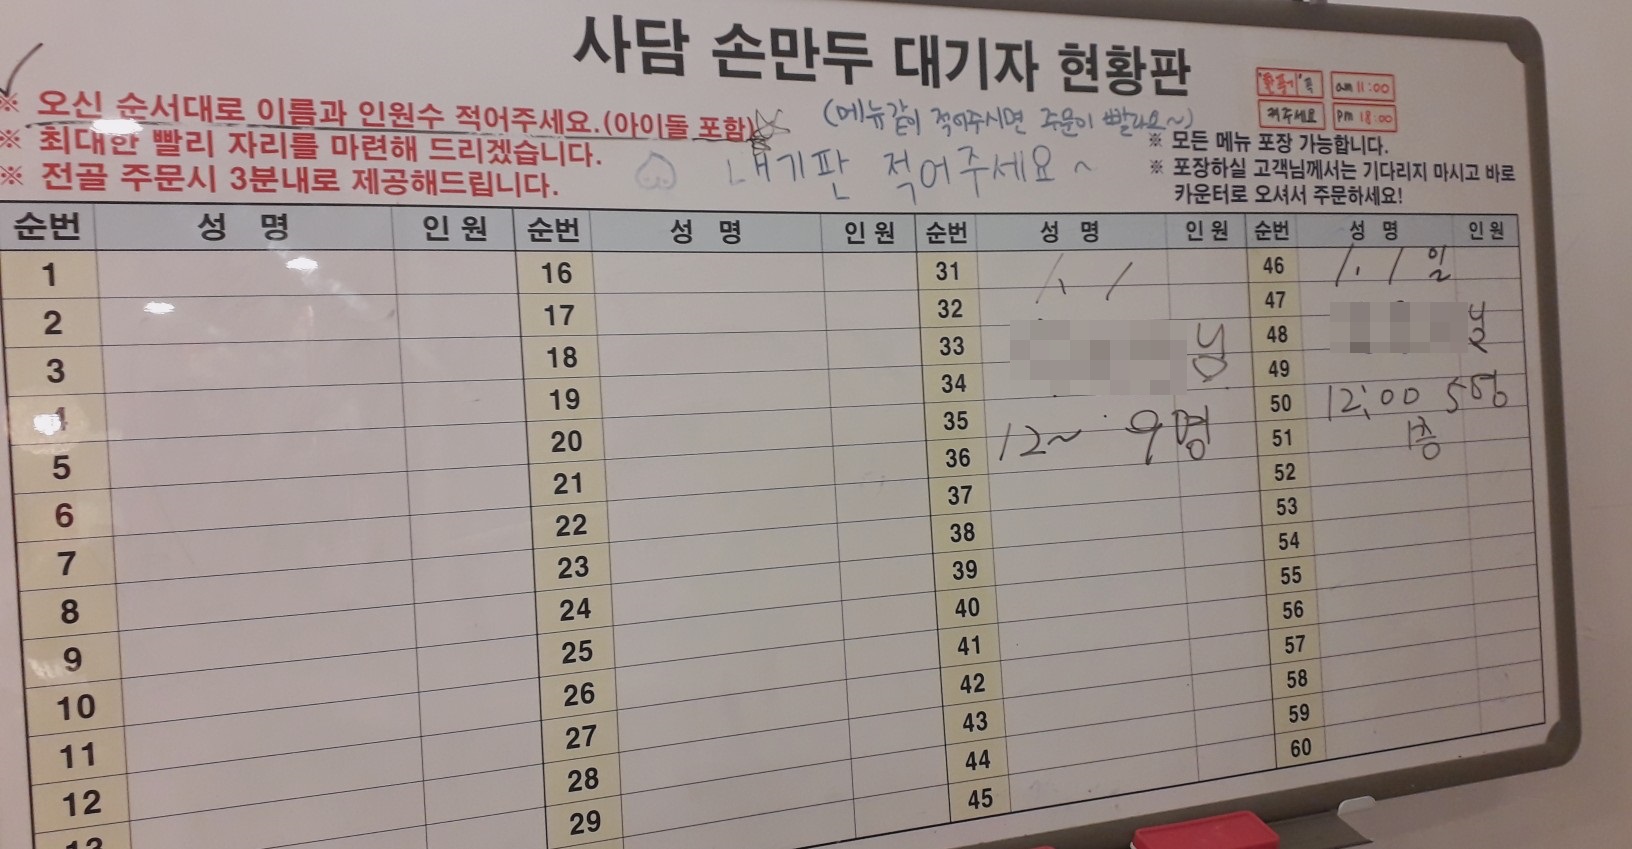 사담 손만두 대기자 현황판
※ 오신 순서대로 이름과 인원수 적어주세요.(아이들 포함)
※ 최대한 빨리 자리를 마련해 드리겠습니다.
※ 전골 주문시 3분내로 제공해드립니다.
(메뉴같이 적어주시면 주문이 빨라요~)
대기판 적어주세요~
am 11:00
켜주세요 pm 18:00
※ 모든 메뉴 포장 가능합니다.
※ 포장하실 고객님께서는 기다리지 마시고 바로
카운터로 오셔서 주문하세요!
순번 성 명 인 원 순번 성 명 인 원 순번 성 명 인 원 순번 성 명 인 원
1 16 31 1. 1 46 1. 1일
2 17 32 47
3 18 33 님 48
4 19 34 49
5 20 35 12~ 9명 50 12:00
6 21 36 51
7 22 37 52
8 23 38 53
9 24 39 54
10 25 40 55
11 26 41 56
12 27 42 57
13 28 43 58
29 44 59
45 60